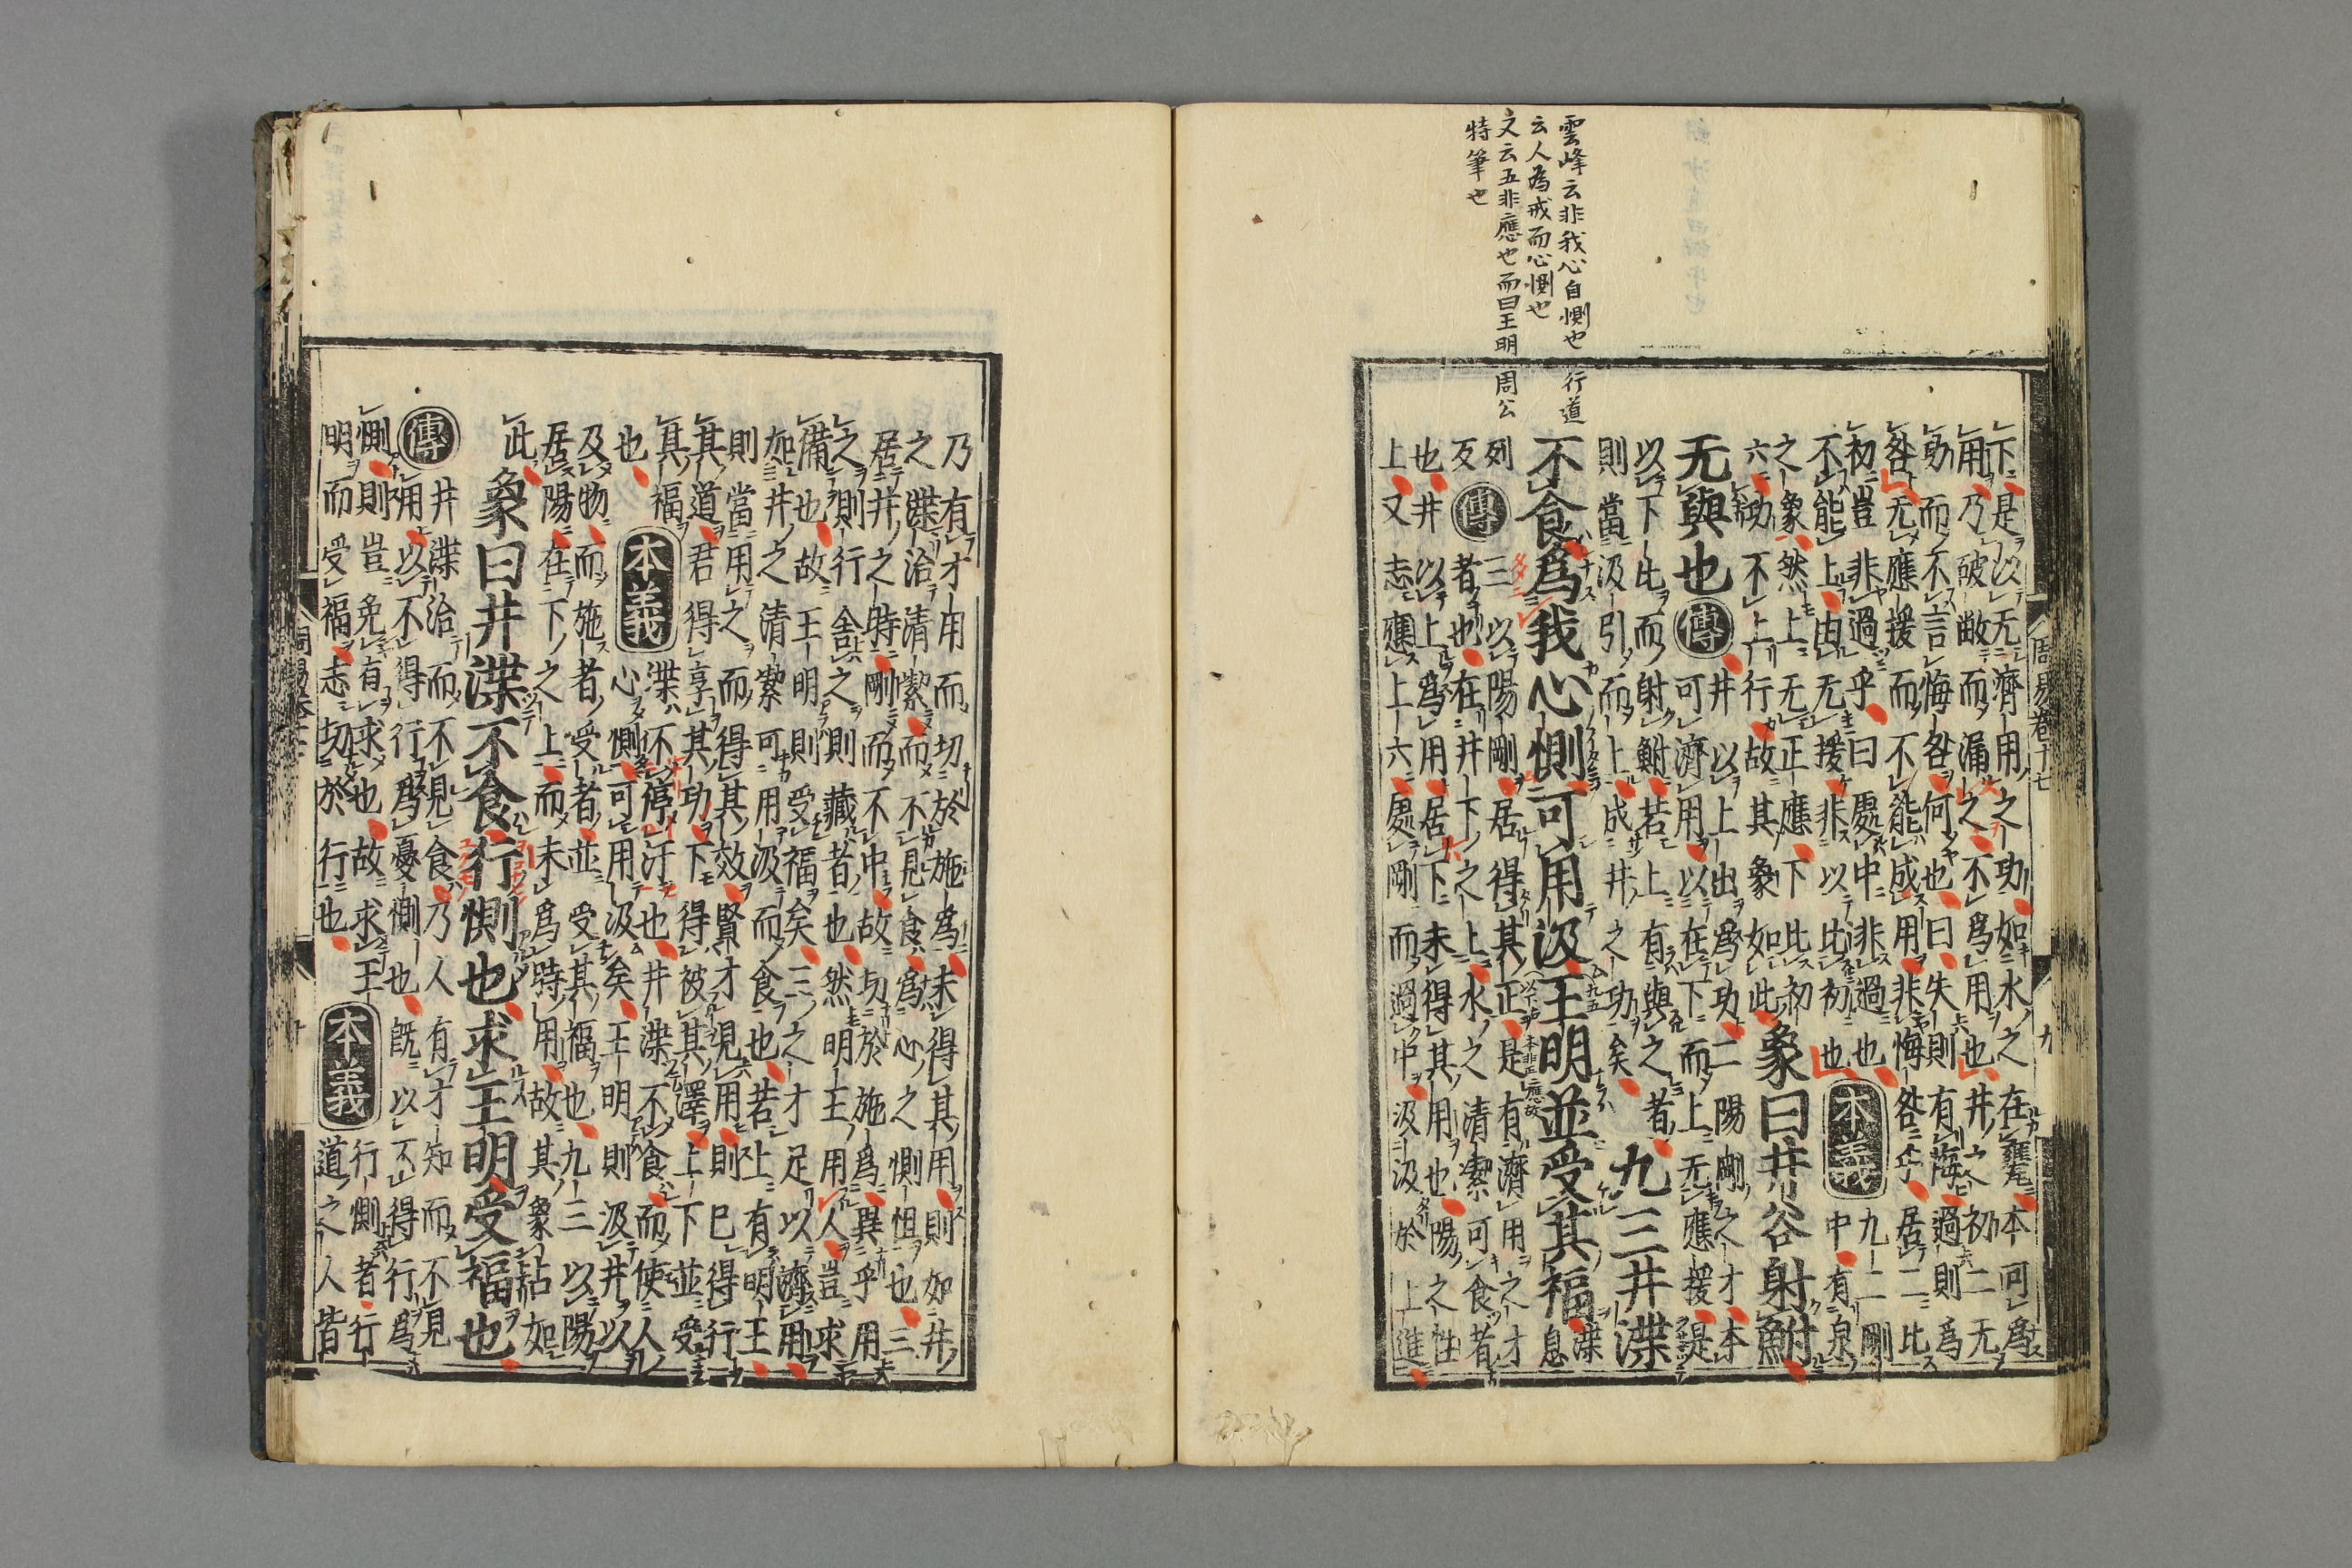 雲峰云非我心自惻也 行道
云人為戒而心惻也
文云五非應也而曰王明 周公
特筆也
周易卷十七 九
下是以无濟用之功如水之在甕本可爲
用乃破敝而漏之不爲用也井之初二无
功而不言悔咎何也曰失則有悔過則爲
咎无應援而不能成用非悔咎乎居二比
初豈非過乎曰處中非過也
不能上由无援非以比初也
本義
九二剛
中有泉
之象然上无正應下比初
六功不上行故其象如此
象曰井谷射鮒
无與也
傳
井以上出爲功二陽剛之才本
可濟用以在下而上无應援是
以下比而射鮒若上有與之者
則當汲引而上成井之功矣
九三井渫
不食爲我心惻可用汲王明並受其福
渫息
列反
傳
三以陽剛居得其正是有濟用之才
者也在井下之上水之清潔可食者
也井以上爲用居下未得其用也陽之性
上又志應上六處剛而過中汲汲於上進
乃有才用而切於施爲未得其用則如井
之渫治清潔而不見食爲心之惻怛也三
居井之時剛而不中故切於施爲異乎用
之則行舍之則藏者也然明王用人豈求
備也故王明則受福矣三之才足以濟用
如井之清潔可用汲而食也若上有明王
則當用之而得其效賢才見用則已得行
其道君得享其功下得被其澤上下並受
其福
也
本義
渫不停汙也井渫不食而使人
心惻可用汲矣王明則汲井以
及物而施者受者並受其福也九三以陽
居陽在下之上而未爲時用故其象占如
此
象曰井渫不食行惻也求王明受福也
傳
井渫治而不見食乃人有才知而不見
用以不得行爲憂惻也旣以不得行爲
惻則豈免有求也故求王
明而受福志切於行也
本義
行惻者行
道之人皆